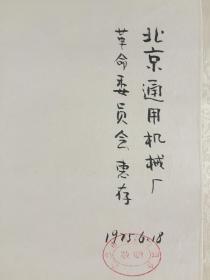 北京通用机械厂
革命委员会 惠存
1975.6.18